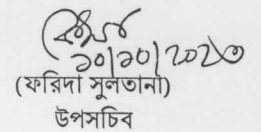 ১০/১০/২০২৩
(ফরিদা সুলতানা)
উপসচিব